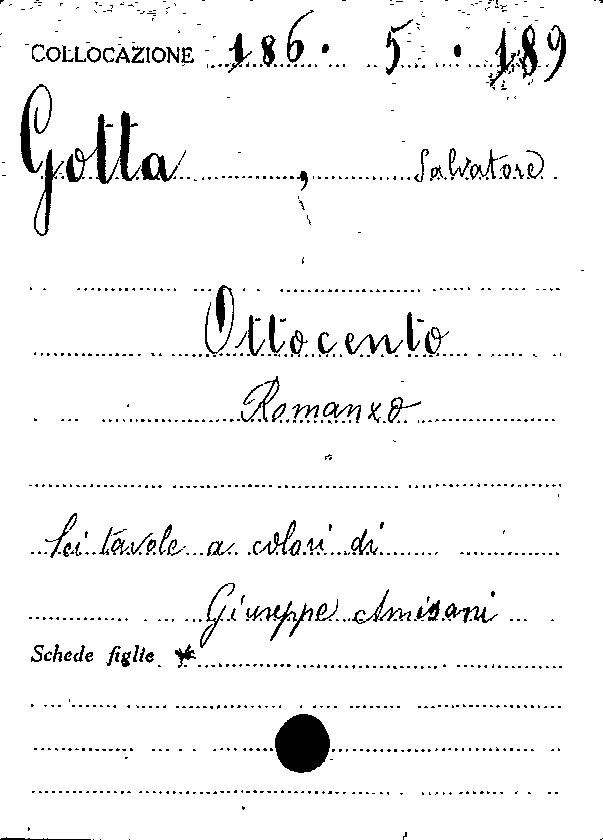 COLLOCAZIONE 186. 5. 189
Gotta, Salvatore
Ottocento
Romanzo
Sei tavole a colori di
Giuseppe Amisani
Schede figlie *